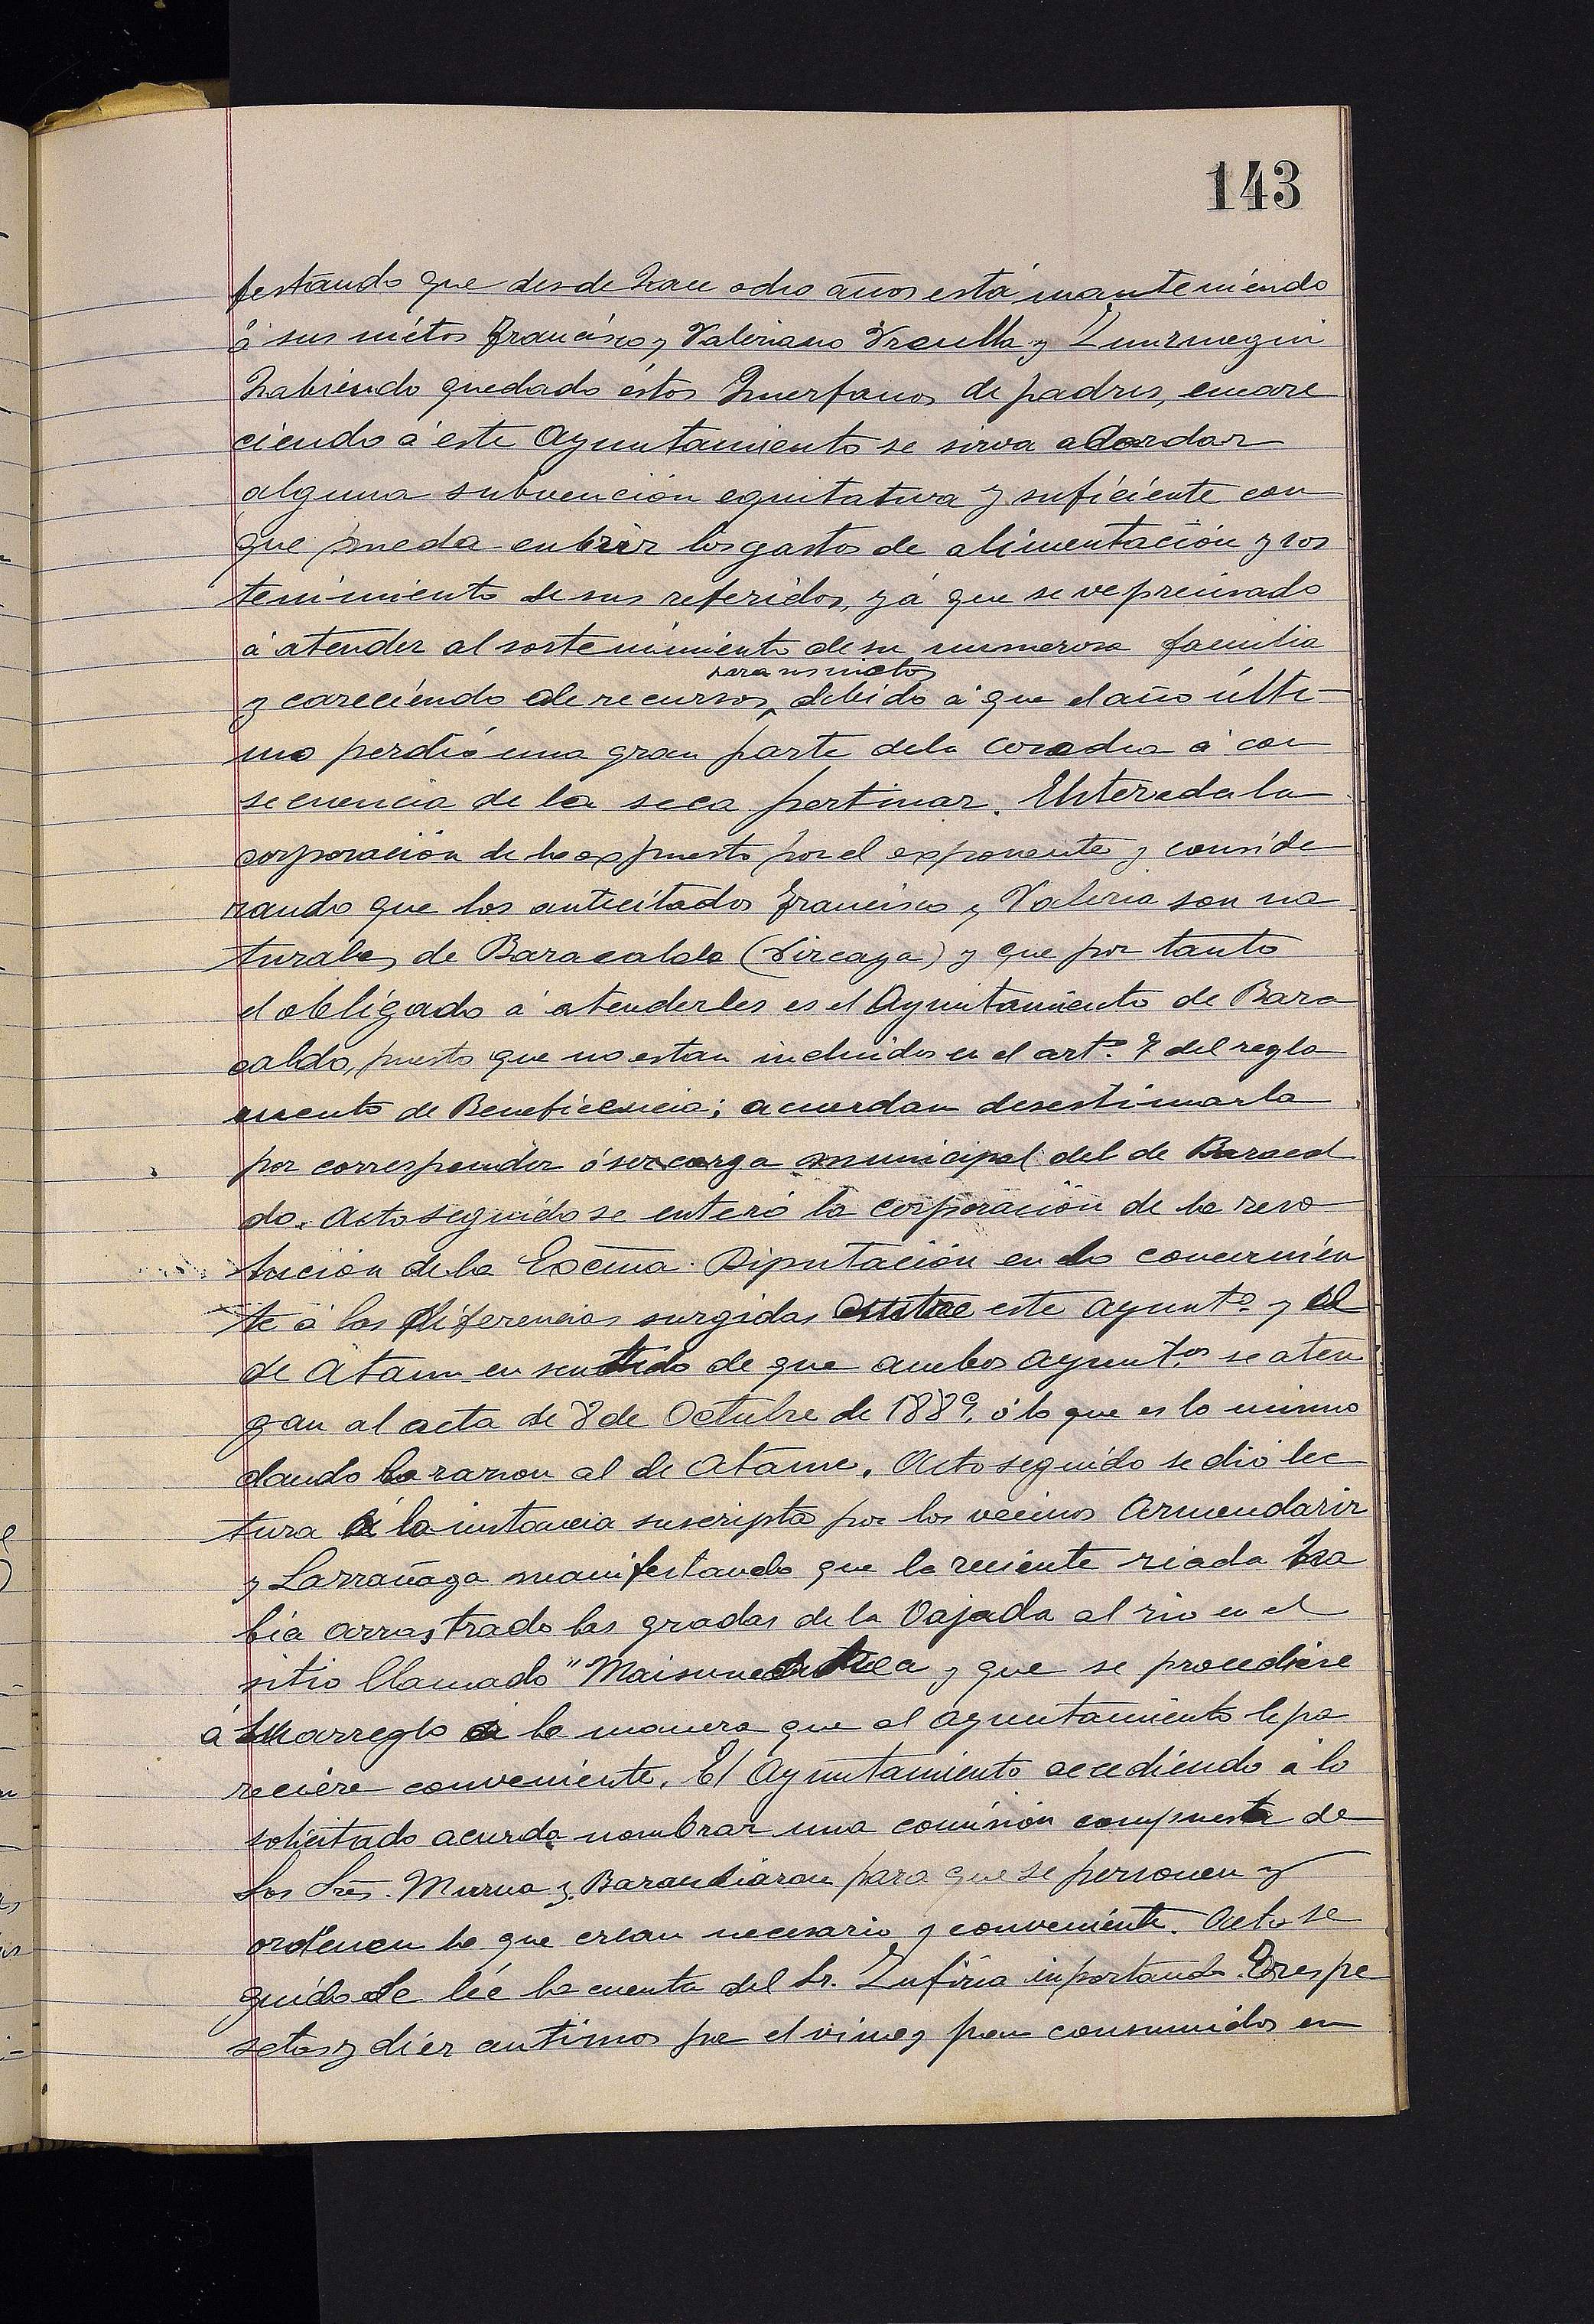 143
festando que desde hace ocho años está manteniendo
á sus niétos Francisco y Valeriano Urculla y
habiendo quedado éstos huerfanos de padres, encare
ciendo á este Ayuntamiento se sirva acordar
alguna subvención equitativa y suficiente con
que pueda cubrir los gastos de alimentación y sos
tenimiento de sus referidos, yá que se ve precisado
á atender al sostenimiento de su numerosa familia
para sus nietos
y careciéndo de recursos, debido á que el año últi-
mo perdió una gran parte dela cosecha á con
secuencia de la seca pertinaz. Enterada la
corporación de lo expuesto por el exponente y conside
rando que los anticitados Francisco y Valerio son na
turales de Baracaldo (Vizcaya) y que por tanto
el obligado á atenderles es el Ayuntamiento de Bara
caldo, puesto que no estan incluidos en el artº. 7 del regla
mento de Beneficencia; acuerdan desestimarla
por corresponder ó ser carga municipal del de Baracal
do. Acto seguido se enteró la corporación de la reso
lución de la Excma. Diputación en lo concernien
te á las diferencias surgidas entre este Ayuntº. y el
de Ataun en sentido de que ambos Ayuntos. se aten
gan al acta de 8 de Octubre de 1889, ó lo que es lo mismo
dando la razon al de Ataun. Acto seguido se dió lec
tura á la instancia suscripta por los vecinos Armendariz
y Larrañaga manifestando que la reciente riada ha
bía arrastrado las gradas de la vajada al rio en el
sitio llamado " y que se procediere
á su arreglo de la manera que al Ayuntamiento le pa
reciere conveniente. El Ayuntamiento accediendo á lo
solicitado acuerda nombrar una comisión compuesta de
los Sres. Murua y Barandiaran para que se personen y
ordenen lo que crean necesario y conveniente. Acto se
guido se lée la cuenta del Sr. Zufiria inportando tres pe
setas y diéz centimos por el vino y pan consumidos en